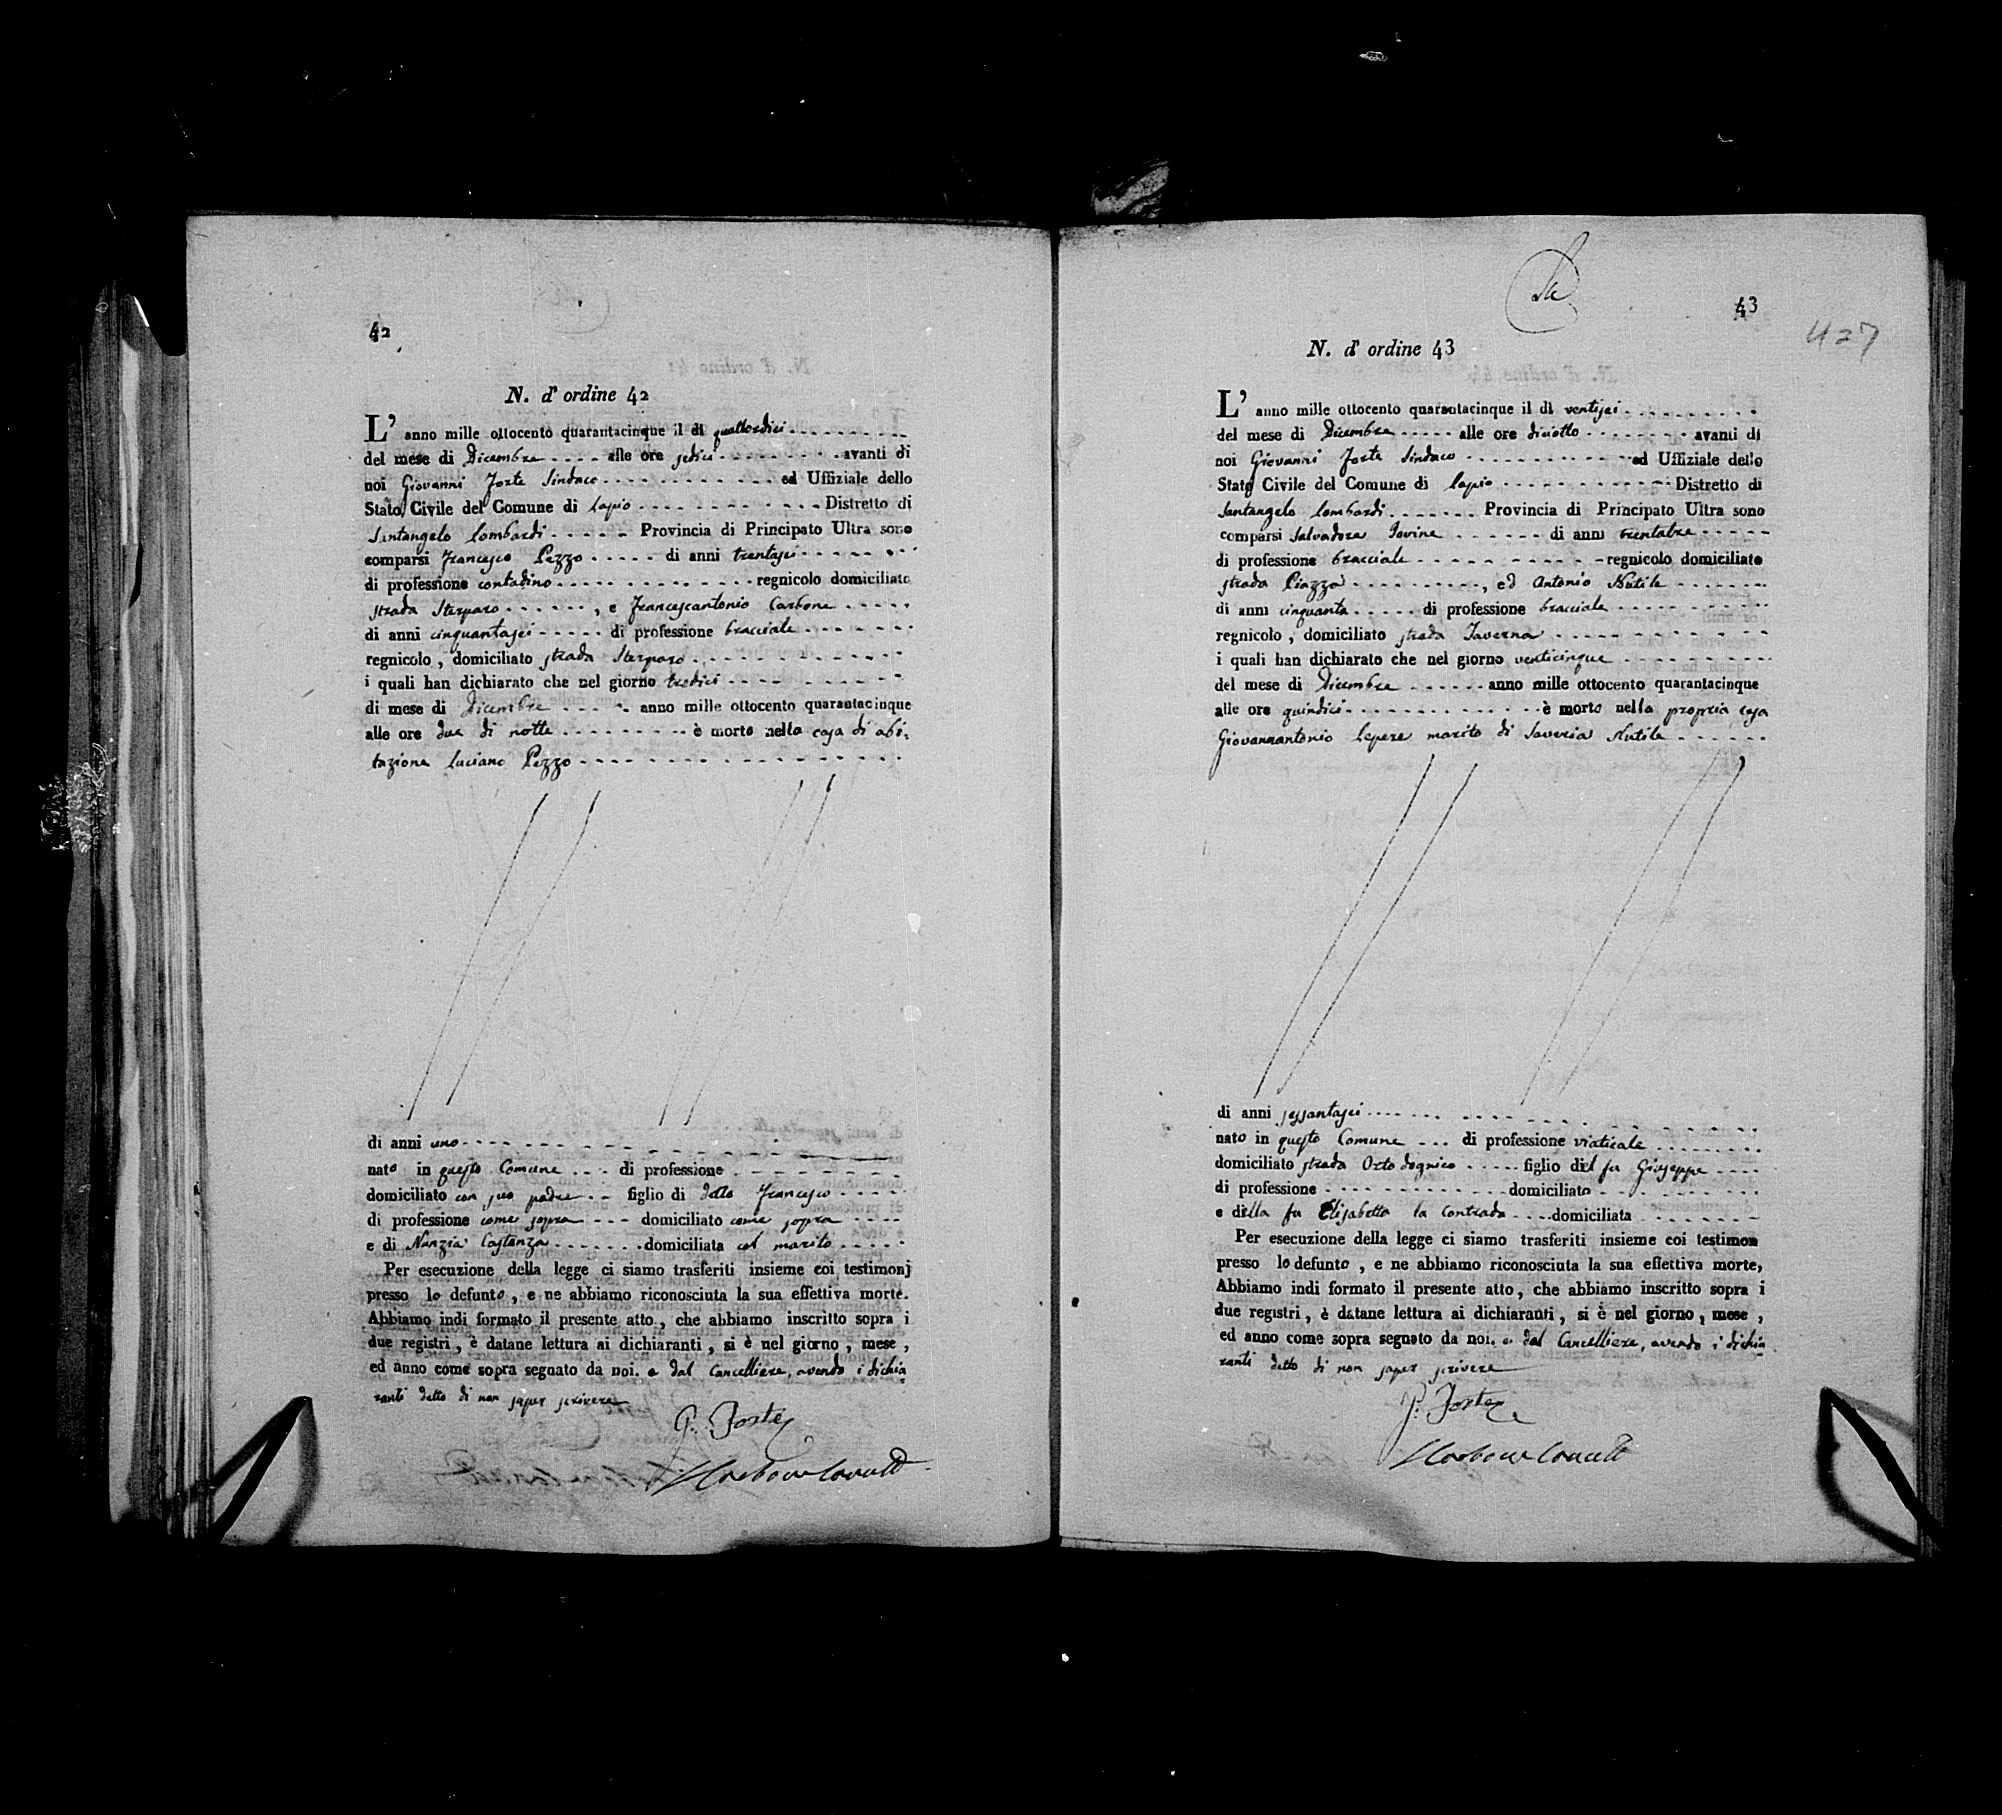 42
N. d' ordine 42
L' anno mille ottocento quarantacinque il di quattordici
del mese di Dicembre alle ore sedici avanti di
noi Giovanni Forte Sindaco ed Uffiziale dello
Stato Civile del Comune di Lapio Distretto di
Santangelo Lombardi Provincia di Principato Ultra sono
comparsi Francesco Pezzo di anni trentasei
di professione contadino regnicolo domiciliato
strada Sterparo , e Francescantonio Carbone
di anni cinquantasei di professione bracciale
regnicolo , domiciliato strada Sterparo
i quali han dichiarato che nel giorno tredici
di mese di Dicembre anno mille ottocento quarantacinque
alle ore due di notte è morto nella casa di abi-
tazione Luciano Pezzo
di anni uno
nato in questo Comune di professione
domiciliato con suo padre figlio di detto Francesco
di professione come sopra domiciliato come sopra
e di Nunzia Costanza domiciliata col marito
Per esecuzione della legge ci siamo trasferiti insieme coi testimonj
presso lo defunto , e ne abbiamo riconosciuta la sua effettiva morte.
Abbiamo indi formato il presente atto , che abbiamo inscritto sopra i
due registri , è datane lettura ai dichiaranti , si è nel giorno , mese ,
ed anno come sopra segnato da noi. e dal Cancelliere, avendo i dichia
ranti detto di non saper scrivere
G. Forte
43
427
N. d' ordine 43
L' anno mille ottocento quarantacinque il di ventisei
del mese di Dicembre alle ore diciotto avanti di
noi Giovanni Forte Sindaco ed Uffiziale dello
Stato Civile del Comune di Lapio Distretto di
Santangelo Lombardi Provincia di Principato Ultra sono
comparsi Salvadore Iovine di anni trentatre
di professione bracciale regnicolo domiciliato
strada Piazza , ed Antonio Nutile
di anni cinquanta di professione bracciale
regnicolo , domiciliato strada Taverna
i quali han dichiarato che nel giorno venticinque
del mese di Dicembre anno mille ottocento quarantacinque
alle ore quindici è morto nella propria casa
Giovannantonio Lepere marito di Saveria Nutile
di anni sessantasei
nato in questo Comune di professione viaticale
domiciliato strada Orto figlio del fu Giuseppe
di professione domiciliato
e della fu Elisabetta la Contrada domiciliata
Per esecuzione della legge ci siamo trasferiti insieme coi testimon
presso lo defunto , e ne abbiamo riconosciuta la sua effettiva morte,
Abbiamo indi formato il presente atto , che abbiamo inscritto sopra i
due registri , è datane lettura ai dichiaranti , si è nel giorno , mese ,
ed anno come sopra segnato da noi. e dal Cancelliere, avendo i dichia
ranti detto di non saper scrivere
G. Forte